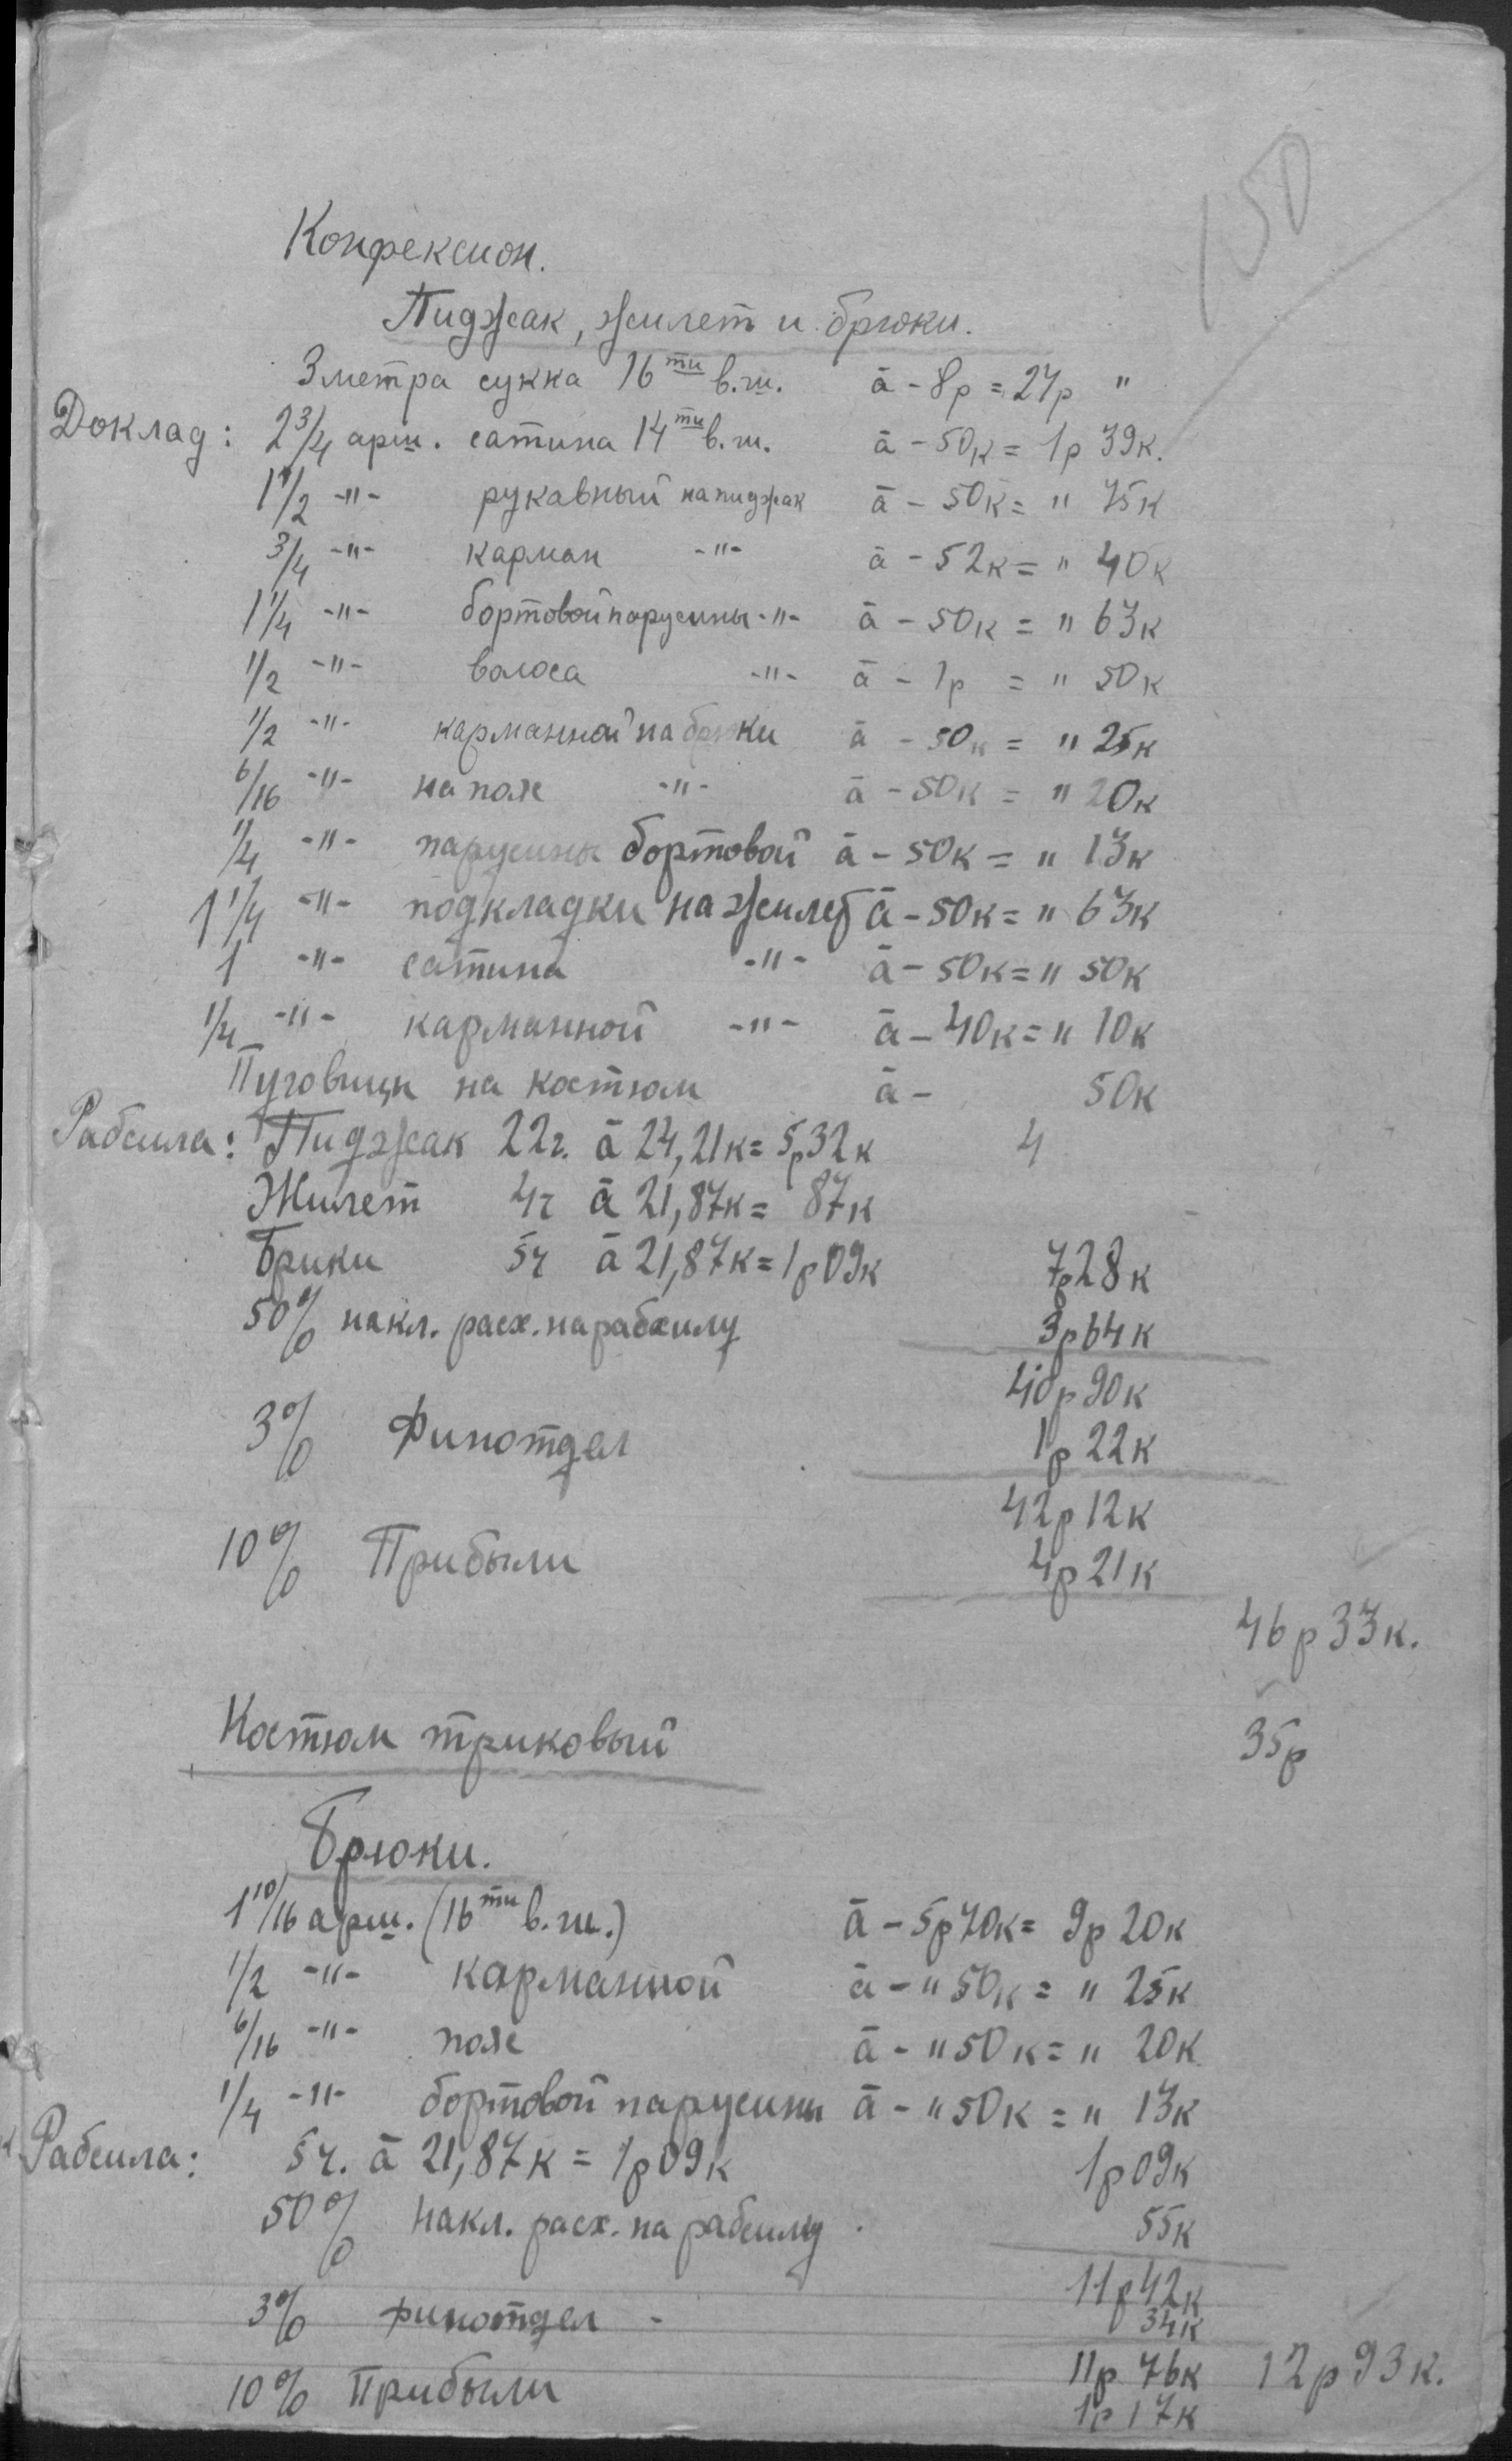 150
Конфексион.
Пиджак, жилет и брюки.
3 метра сукна 16ти в.ш. à - 8р = 24р "
Доклад: 2 3/4 арш. сатина 14ти в.ш. à - 50к = 1р 39к.
1 1/2 -"- рукавный на пиджак à - 50к = " 75к
3/4 -"- карман -"- à - 52к = " 40к
1 1/4 -"- бортовой парусины -"- à - 50к = " 63к
1/2 -"- волоса -"- à - 1р = " 50к
1/2 -"- карманной на брюки à - 50к = " 25к
6/16 -"- на пояс -"- à - 50к = " 20к
1/4 -"- парусины бортовой à - 50к = " 13к
1 1/4 -"- подкладки на жилет à - 50к = " 63к
1 -"- сатина -"- à - 50к = " 50к
1/4 -"- карманной -"- à - 40к = " 10к
Пуговицы на костюм à - 50к
Рабсила: Пиджак 22ч. à 24,21к = 5р32к 4
Жилет 4ч à 21,87к = 87к
Брюки 5ч à 21,87к = 1р09к 7р28к
50% накл. расх. на рабсилу 3р64к
40р90к
3% Финотдел 1р22к
42р12к
10% Прибыли 4р21к
46р33к.
Костюм триковый 35р
Брюки.
1 10/16 арш. (16ти в.ш.) à - 5р70к = 9р20к
1/2 -"- карманной à - " 50к = " 25к
6/16 -"- пояс à - " 50к = " 20к
1/4 -"- бортовой парусины à - " 50к = " 13к
Рабсила: 5ч. à 21,87к = 1р09к 1р09к
50% накл. расх. на рабсилу 55к
11р42к
3% финотдел - 34к
11р76к 12р93к.
10% Прибыли 1р17к